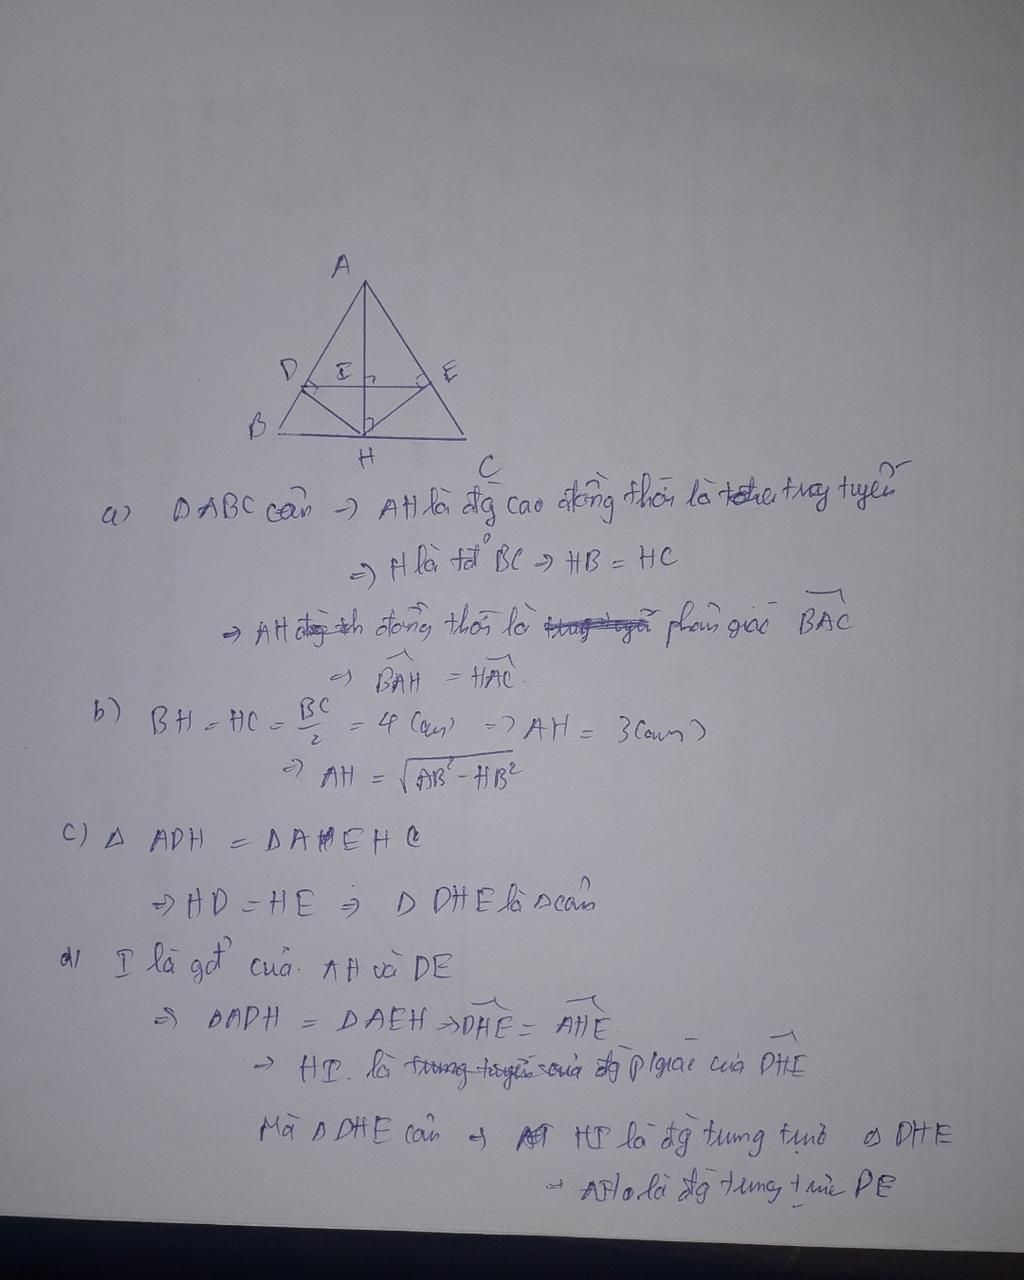 A
D I E
B
H
C
a) ΔABC cân → AH là đg cao đồng thời là trug tuyến
=> H là tđ BC => HB = HC
=> AH đồng thời là phân giác BAC
=> BAH = HAC.
b) BH = HC = BC/2 = 4 (cm) => AH = 3 (cm)
=> AH = √AB² - HB²
c) Δ ADH = ΔAEH
=> HD = HE => Δ DHE là Δ cân
d) I là gđ của AH và DE
=> ΔADH = ΔAEH => DHE = AHE
→ HI là đg p/giác của DHE
Mà Δ DHE cân => HI là đg trung trực Δ DHE
→ AH là đg trung trực DE